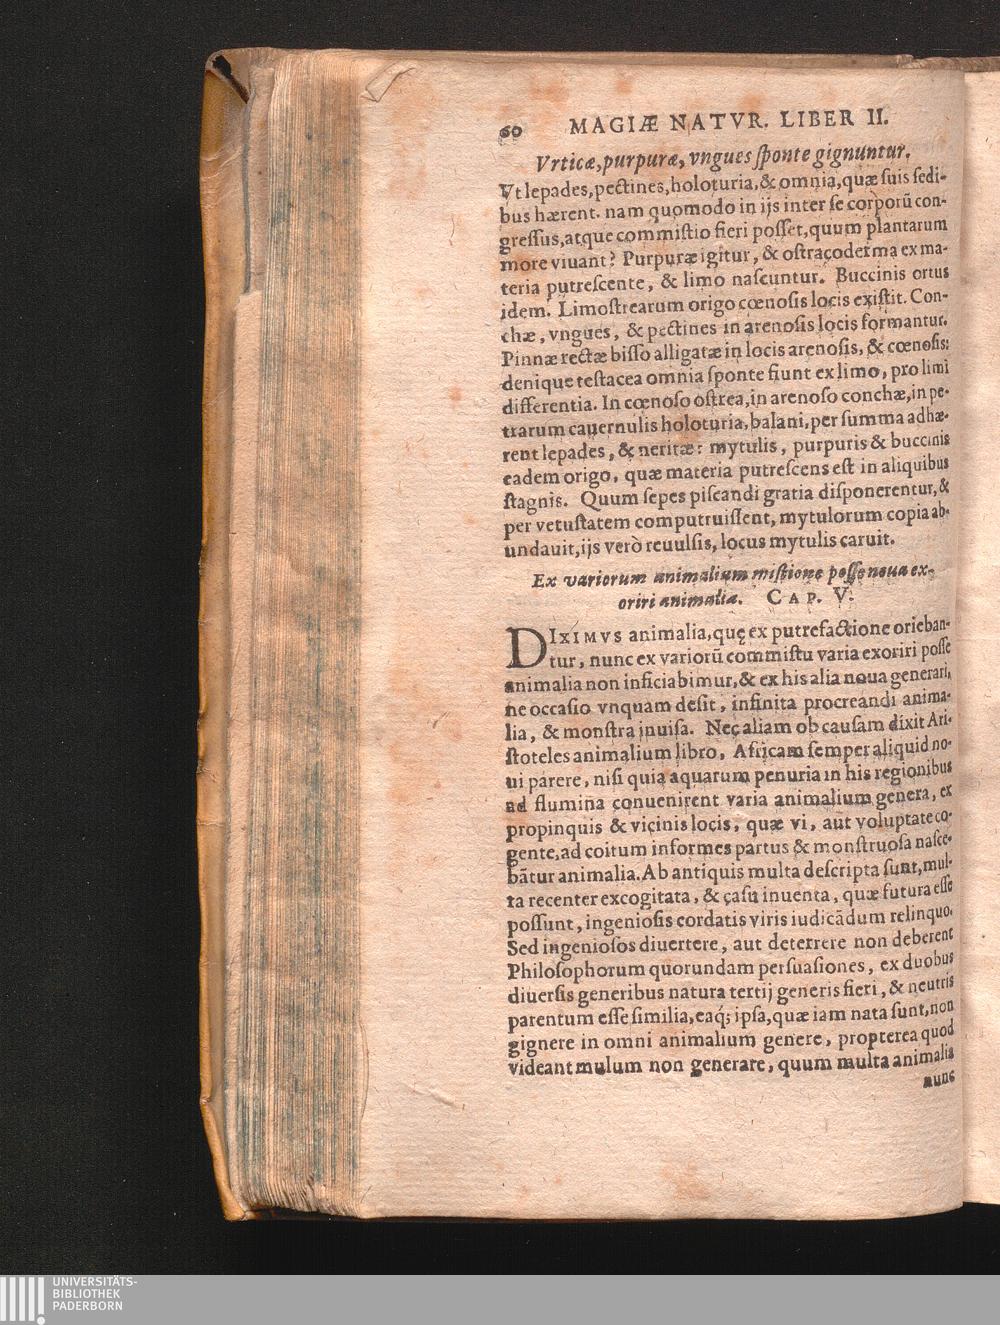 60 MAGIÆ NATVR. LIBER II.
Vrticæ, purpuræ, vngues sponte gignuntur.
Vt lepades, pectines, holoturia, & omnia, quæ suis sedi-
bus hærent. nam quomodo in ijs inter se corporũ con-
gressus, atque commistio fieri posset, quum plantarum
more viuant? Purpuræ igitur, & ostracoderma ex ma-
teria putrescente, & limo nascuntur. Buccinis ortus
idem. Limostrearum origo cœnosis locis existit. Con-
chæ, vngues, & pectines in arenosis locis formantur.
Pinnæ rectæ bisso alligatæ in locis arenosis, & cœnosis:
denique testacea omnia sponte fiunt ex limo, pro limi
differentia. In cœnoso ostrea, in arenoso conchæ, in pe-
trarum cauernulis holoturia, balani, per summa adhæ-
rent lepades, & neritæ: mytulis, purpuris & buccinis
eadem origo, quæ materia putrescens est in aliquibus
stagnis. Quum sepes piscandi gratia disponerentur, &
per vetustatem computruissent, mytulorum copia ab-
undauit, ijs verò reuulsis, locus mytulis caruit.
Ex variorum animalium mistione posse noua ex-
oriri animalia. CAP. V.
DIXIMVS animalia, quę ex putrefactione orieban-
tur, nunc ex variorũ commistu varia exoriri posse
animalia non inficiabimur, & ex his alia noua generari,
ne occasio vnquam desit, infinita procreandi anima-
lia, & monstra inuisa. Nec aliam ob causam dixit Ari-
stoteles animalium libro, Africam semper aliquid no-
ui parere, nisi quia aquarum penuria in his regionibus
ad flumina conuenirent varia animalium genera, ex
propinquis & vicinis locis, quæ vi, aut voluptate co-
gente, ad coitum informes partus & monstruosa nasce-
bãtur animalia. Ab antiquis multa descripta sunt, mul-
ta recenter excogitata, & casu inuenta, quæ futura esse
possunt, ingeniosis cordatis viris iudicãdum relinquo.
Sed ingeniosos diuertere, aut deterrere non deberent
Philosophorum quorundam persuasiones, ex duobus
diuersis generibus natura tertij generis fieri, & neutris
parentum esse similia, eaq́; ipsa, quæ iam nata sunt, non
gignere in omni animalium genere, propterea quod
videant mulum non generare, quum multa animalia
nunc
UNIVERSITÄTS-
BIBLIOTHEK
PADERBORN